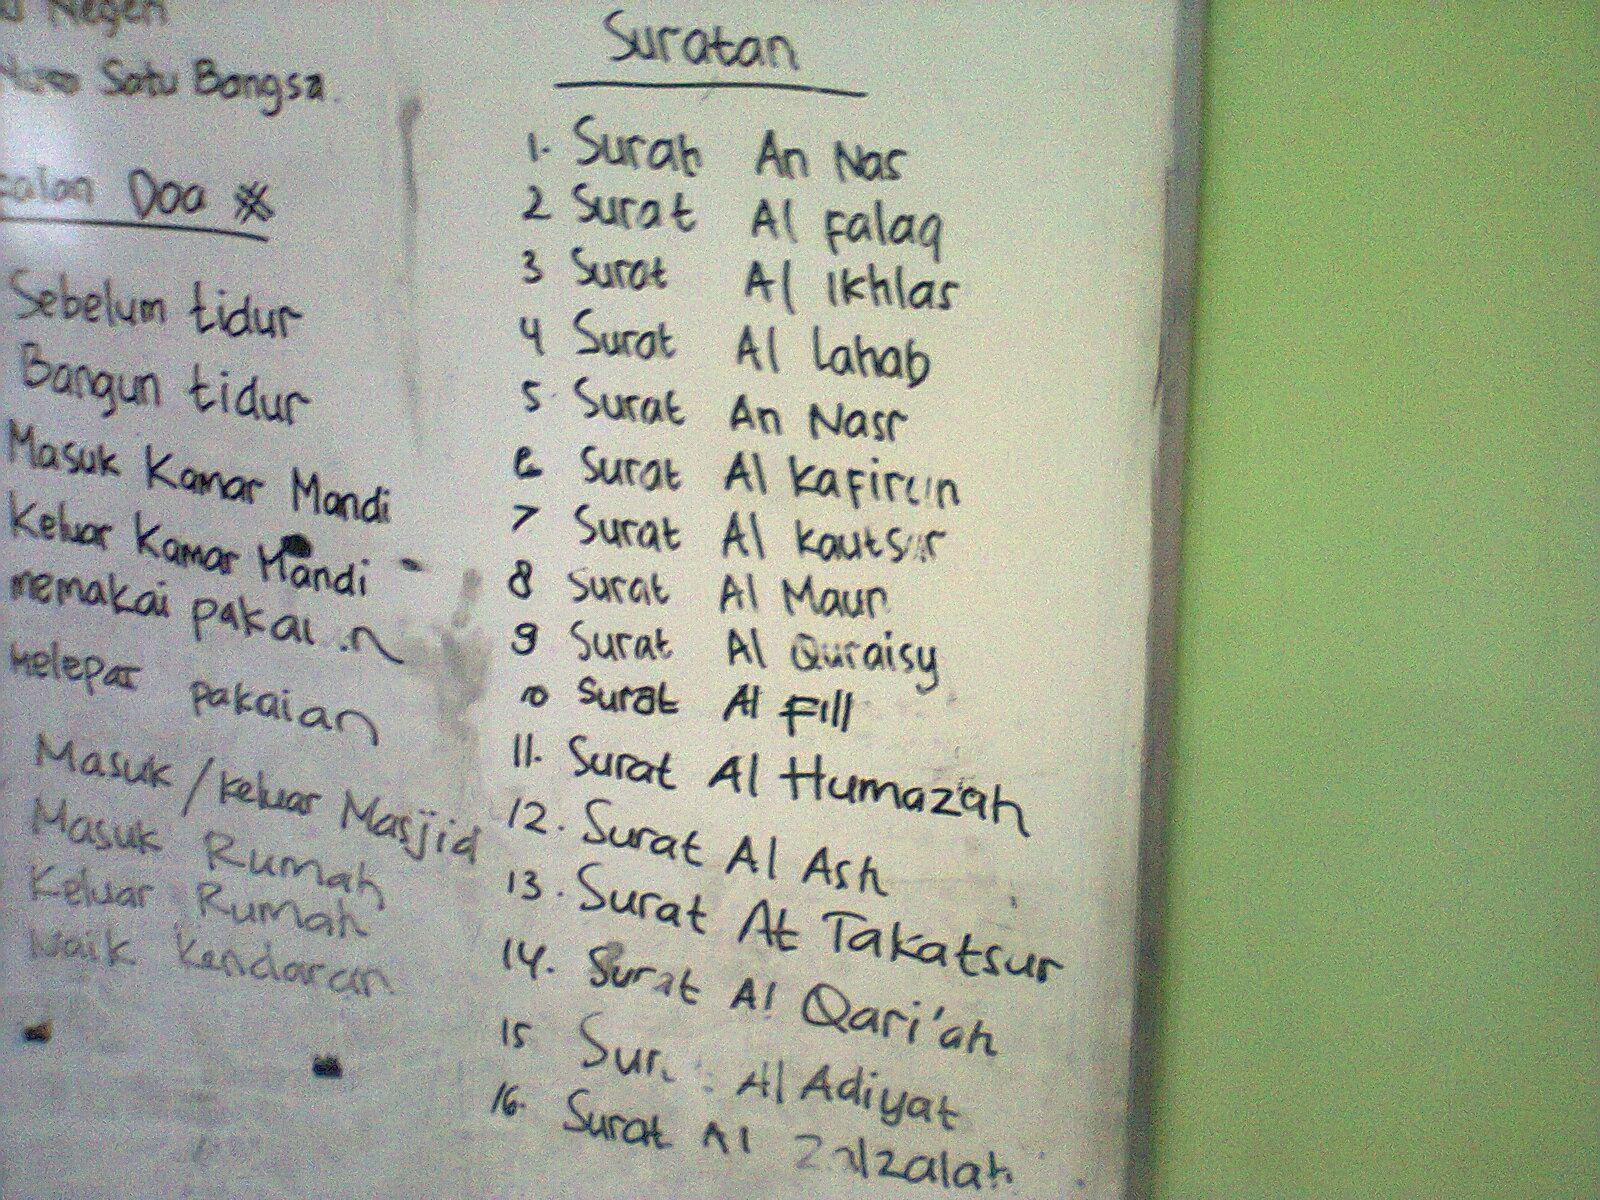 Negeri
Satu Bangsa.
Doa #
Sebelum tidur
Bangun tidur
Masuk Kamar Mandi
Keluar Kamar Mandi -
memakai pakai n
Melepas pakaian
Masuk / keluar Masjid
Masuk Rumah
Keluar Rumah
Naik Kendaraan
Suratan
1. Surah An Nas
2 Surat Al Falaq
3 Surat Al Ikhlas
4 Surat Al Lahab
5. Surat An Nasr
6 Surat Al Kafirun
7 Surat Al Kautsar
8 Surat Al Maun
9 Surat Al Quraisy
10 Surat Al Fill
11. Surat Al Humazah
12. Surat Al Ash
13. Surat At Takatsur
14. Surat Al Qari'ah
15 Sur Al Adiyat
16. Surat Al Zalzalah